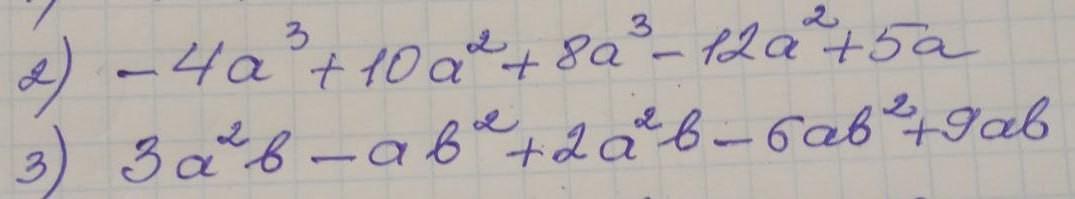 2) -4a³ + 10a² + 8a³ - 12a² + 5a
3) 3a²b - ab² + 2a²b - 6ab² + 9ab